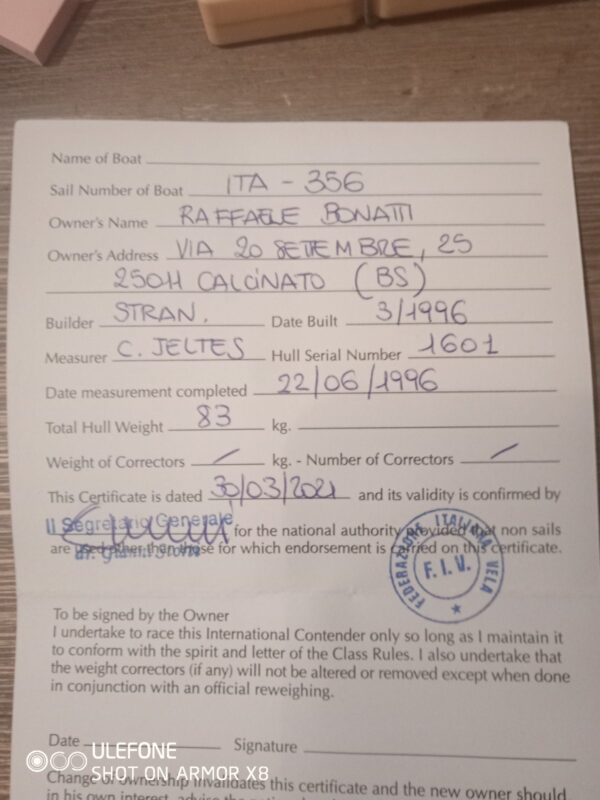 Name of Boat
Sail Number of Boat ITA - 356
Owner's Name RAFFAELE BONATTI
Owner's Address VIA 20 SETTEMBRE, 25
25011 CALCINATO (BS)
Builder STRAN. Date Built 3/1996
Measurer C. JELTES Hull Serial Number 1601
Date measurement completed 22/06/1996
Total Hull Weight 83 kg.
Weight of Correctors / kg. - Number of Correctors /
This Certificate is dated 30/03/2021 and its validity is confirmed by
Il Segretario Generale for the national authority provided that non sails
are used other than those for which endorsement is carried on this certificate.
FEDERAZIONE ITALIANA VELA
F.I.V.
To be signed by the Owner
I undertake to race this International Contender only so long as I maintain it
to conform with the spirit and letter of the Class Rules. I also undertake that
the weight correctors (if any) will not be altered or removed except when done
in conjunction with an official reweighing.
Date Signature
Change of ownership invalidates this certificate and the new owner should
in his own interest, advise the
ULEFONE
SHOT ON ARMOR X8